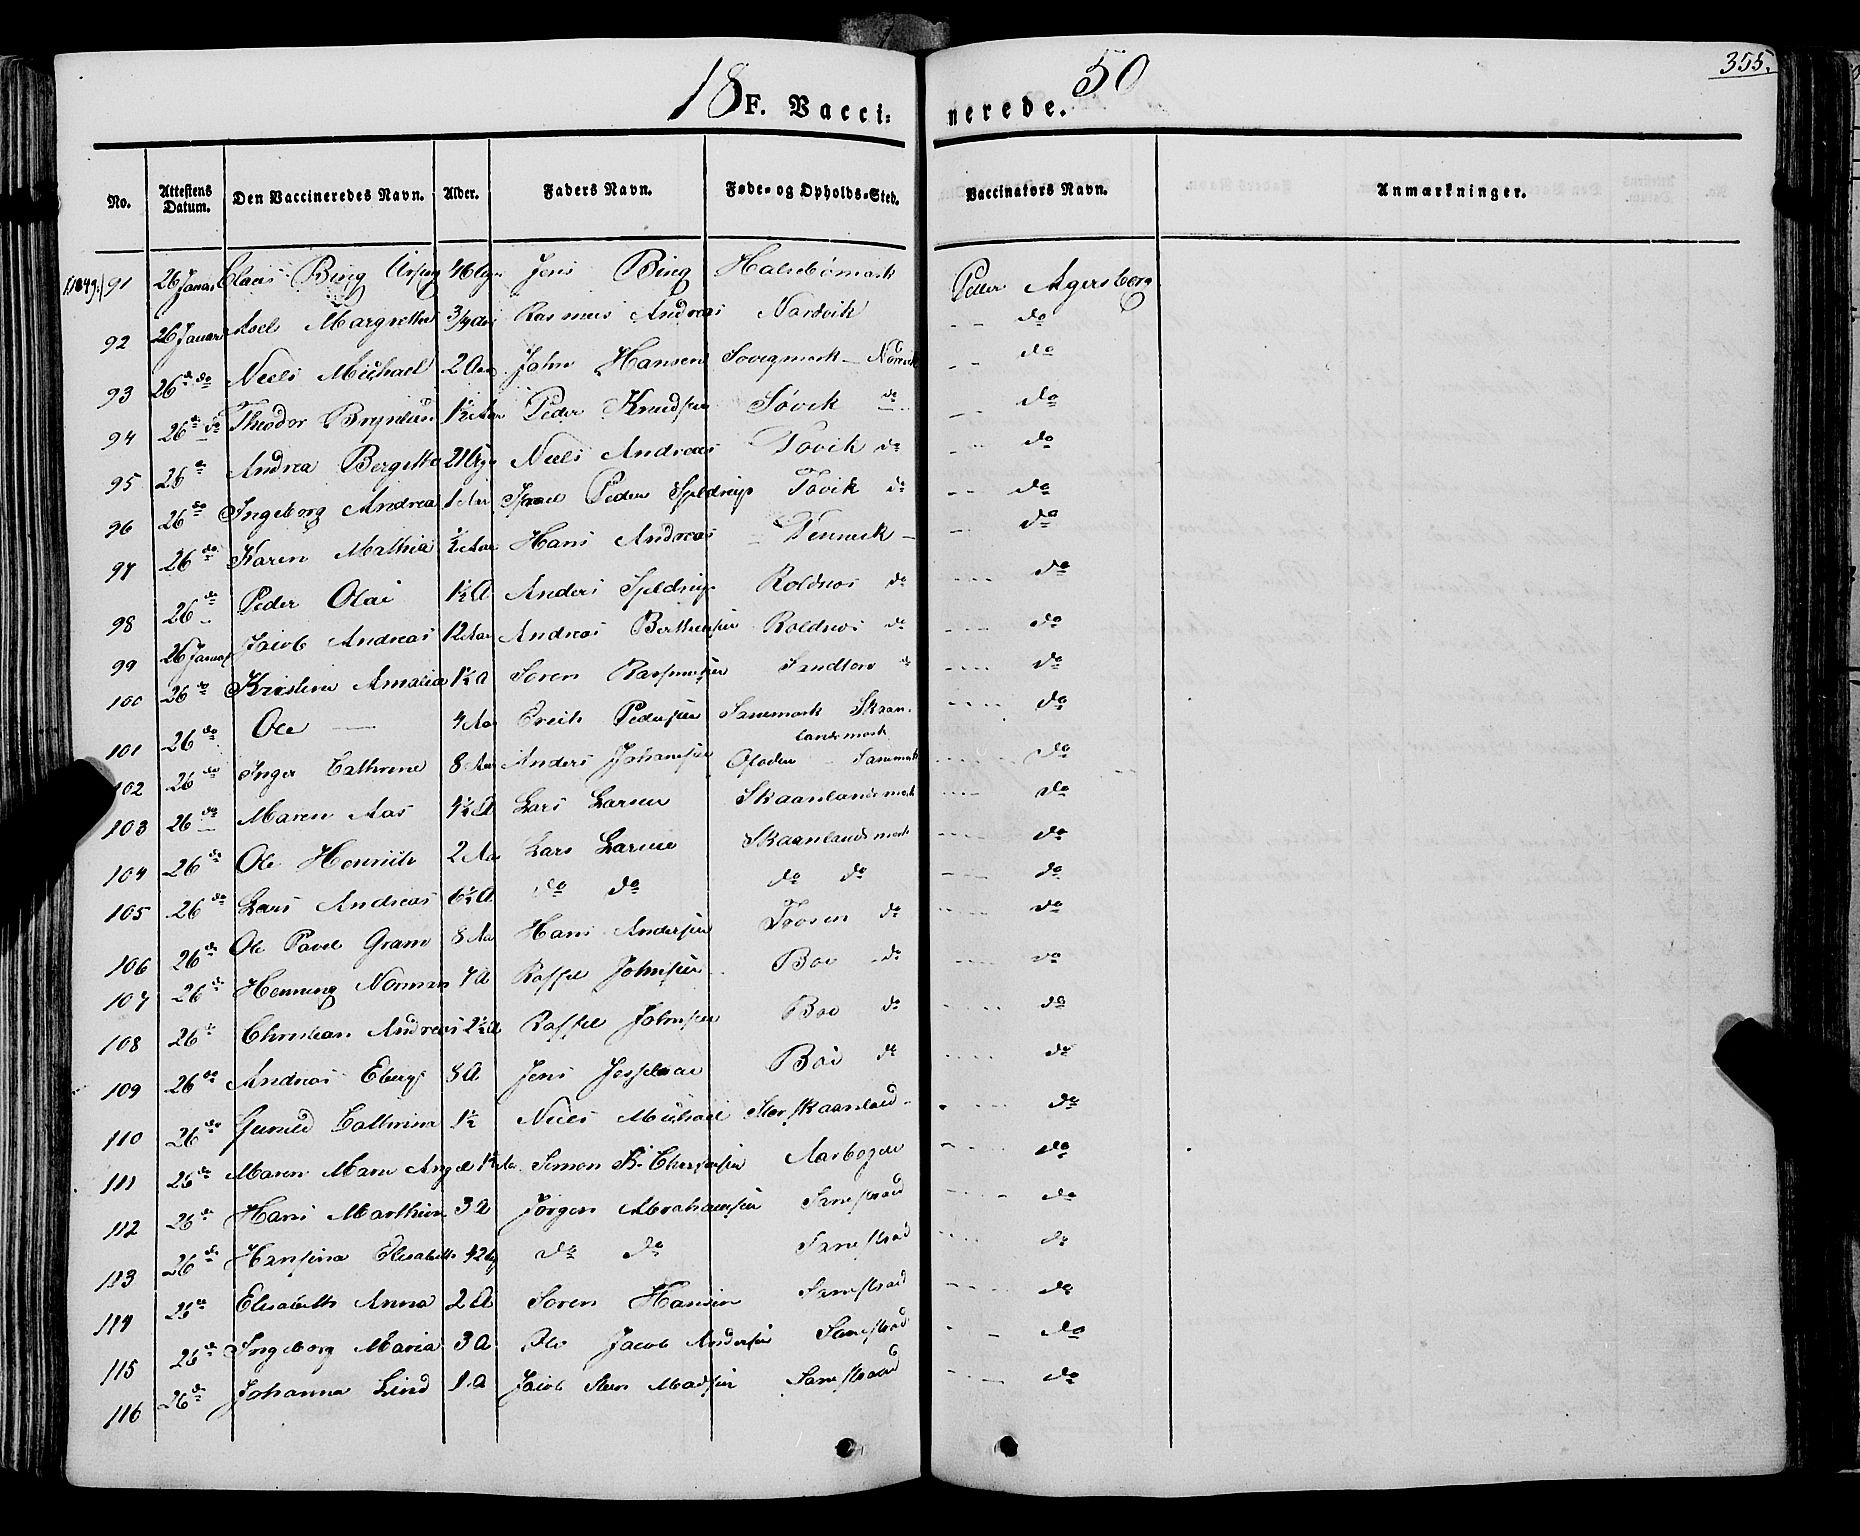 355.
18 50
F. Vaccinerede.
No. Attestens Datum. Den Vaccineredes Navn. Alder. Faders Navn. Føde- og Opholds-Sted. Vaccinators Navn. Anmærkninger.
(1849) 91 26 Januar Claus Bing 46 Jens Bing Halsebømark Petter Agersborg
92 26 Januar Axel Margrethe 3/4 Aar Rasmus Andreas Nordvik do
93 26 do do Niels Michael 2 Aar John Hansen Sovigmark do
94 26 do do Theodor 1½ Aar Peder Knudsen Søvik do do
95 26 do Andrea Bergette 21 Niels Andreas Tovik do do
96 26 do Ingeborg Andrea 1 Aar Israel Peder Tovik do do
97 26 do Karen Mathia ½ Aar Hans Andreas do
98 26 do Peder Olai 1½ A Anders Roldnæs do do
99 26 Januar Jacob Andreas 12 Aar Andreas Berthensen Roldnæs do do
100 26 do Kristina Amalia 1½ A Soren Rasmussen Sandtorv do do
101 26 do Ole — 4 Aar Erich Pedersen Sanemark Skaanlandsmark do
102 26 do Inger Cathrine 8 Aar Anders Johansen Sanemark do
103 26 do Maren Aas 4½ A Lars Larsen Skaanlandsmark do
104 26 do Ole Henrich 2 Aar Lars Larsen Skaanlandsmark do
105 26 do Lars Andreas 6½ A do do do do do
106 26 do Ole Pavel Gram 8 Aar Hans Andersen Trosen do do
107 26 do Henning Norman 4 A Raffel Johnsen Boe do do
108 26 do Christian Andreas 2½ A Raffel Johnsen Boe do do
109 26 do Andreas Eberg 8 A Jens Boe do do
110 26 do Gunild Cathrina 1½ Niels Michael Storskaanland do
111 26 do Maren Marie Angel 1½ Aar Simon B. Christensen Aarbogen do
112 26 do Hans Marthin 3 A Jørgen Abrahamsen Sanestrand do
113 26 do Hansina Elisabeth 42 do do Sanestrand do
114 26 do Elisabeth Anna 2 A Soren Hansen Sanestrand do
115 26 do Ingeborg Maria 3 A Ole Jacob Andersen Sanestrand do
116 26 do Johanna Lind 1 A Jacob Steen Madsen Sanestrand do